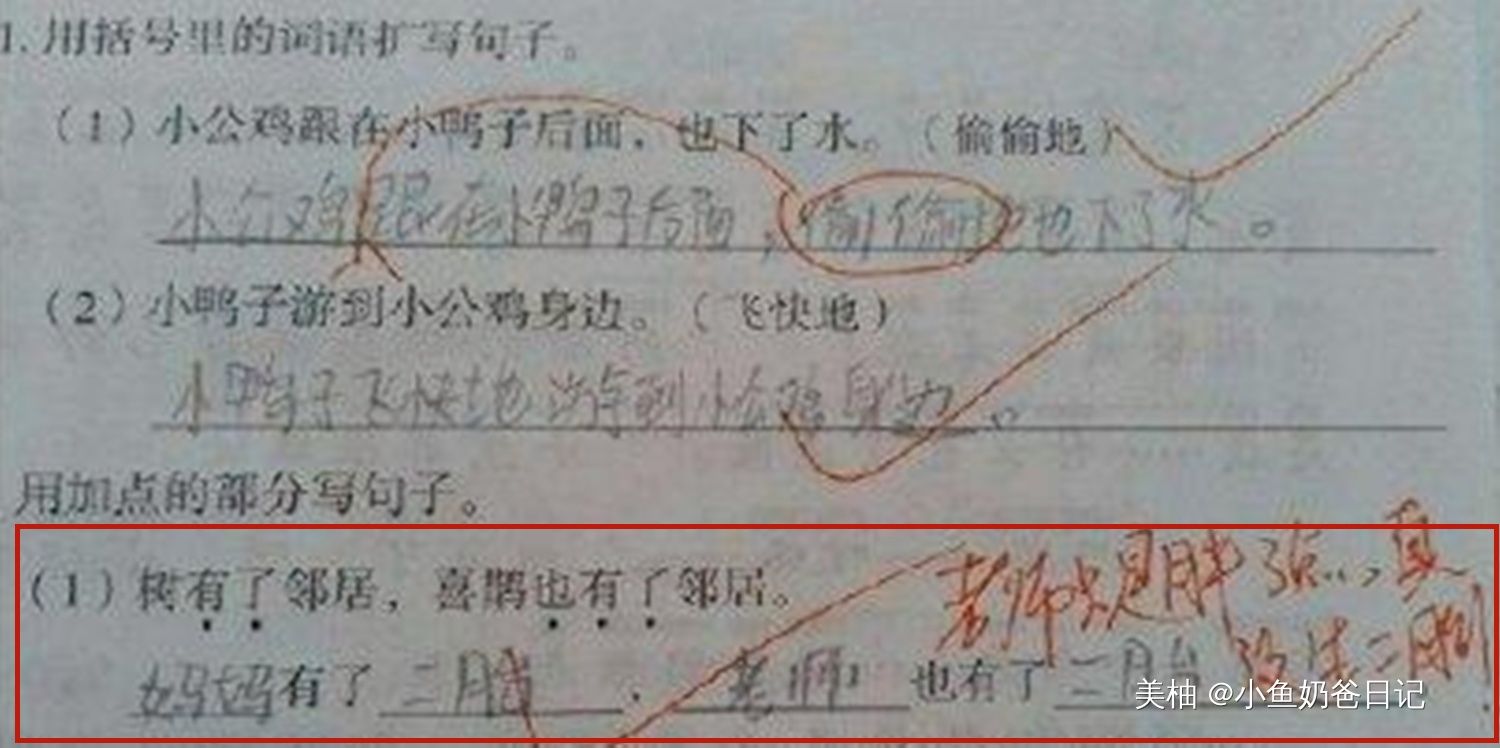 1.用括号里的词语扩写句子。
（1）小公鸡跟在小鸭子后面，也下了水。（偷偷地）
小公鸡跟在小鸭子后面，偷偷地也下了水。
（2）小鸭子游到小公鸡身边。（飞快地）
小鸭子飞快地游到小公鸡身边。
用加点的部分写句子。
老师只是胖了点...真
（1）树有了邻居，喜鹊也有了邻居。
没怀二胎
妈妈有了二胎，老师也有了二胎
美柚 @小鱼奶爸日记